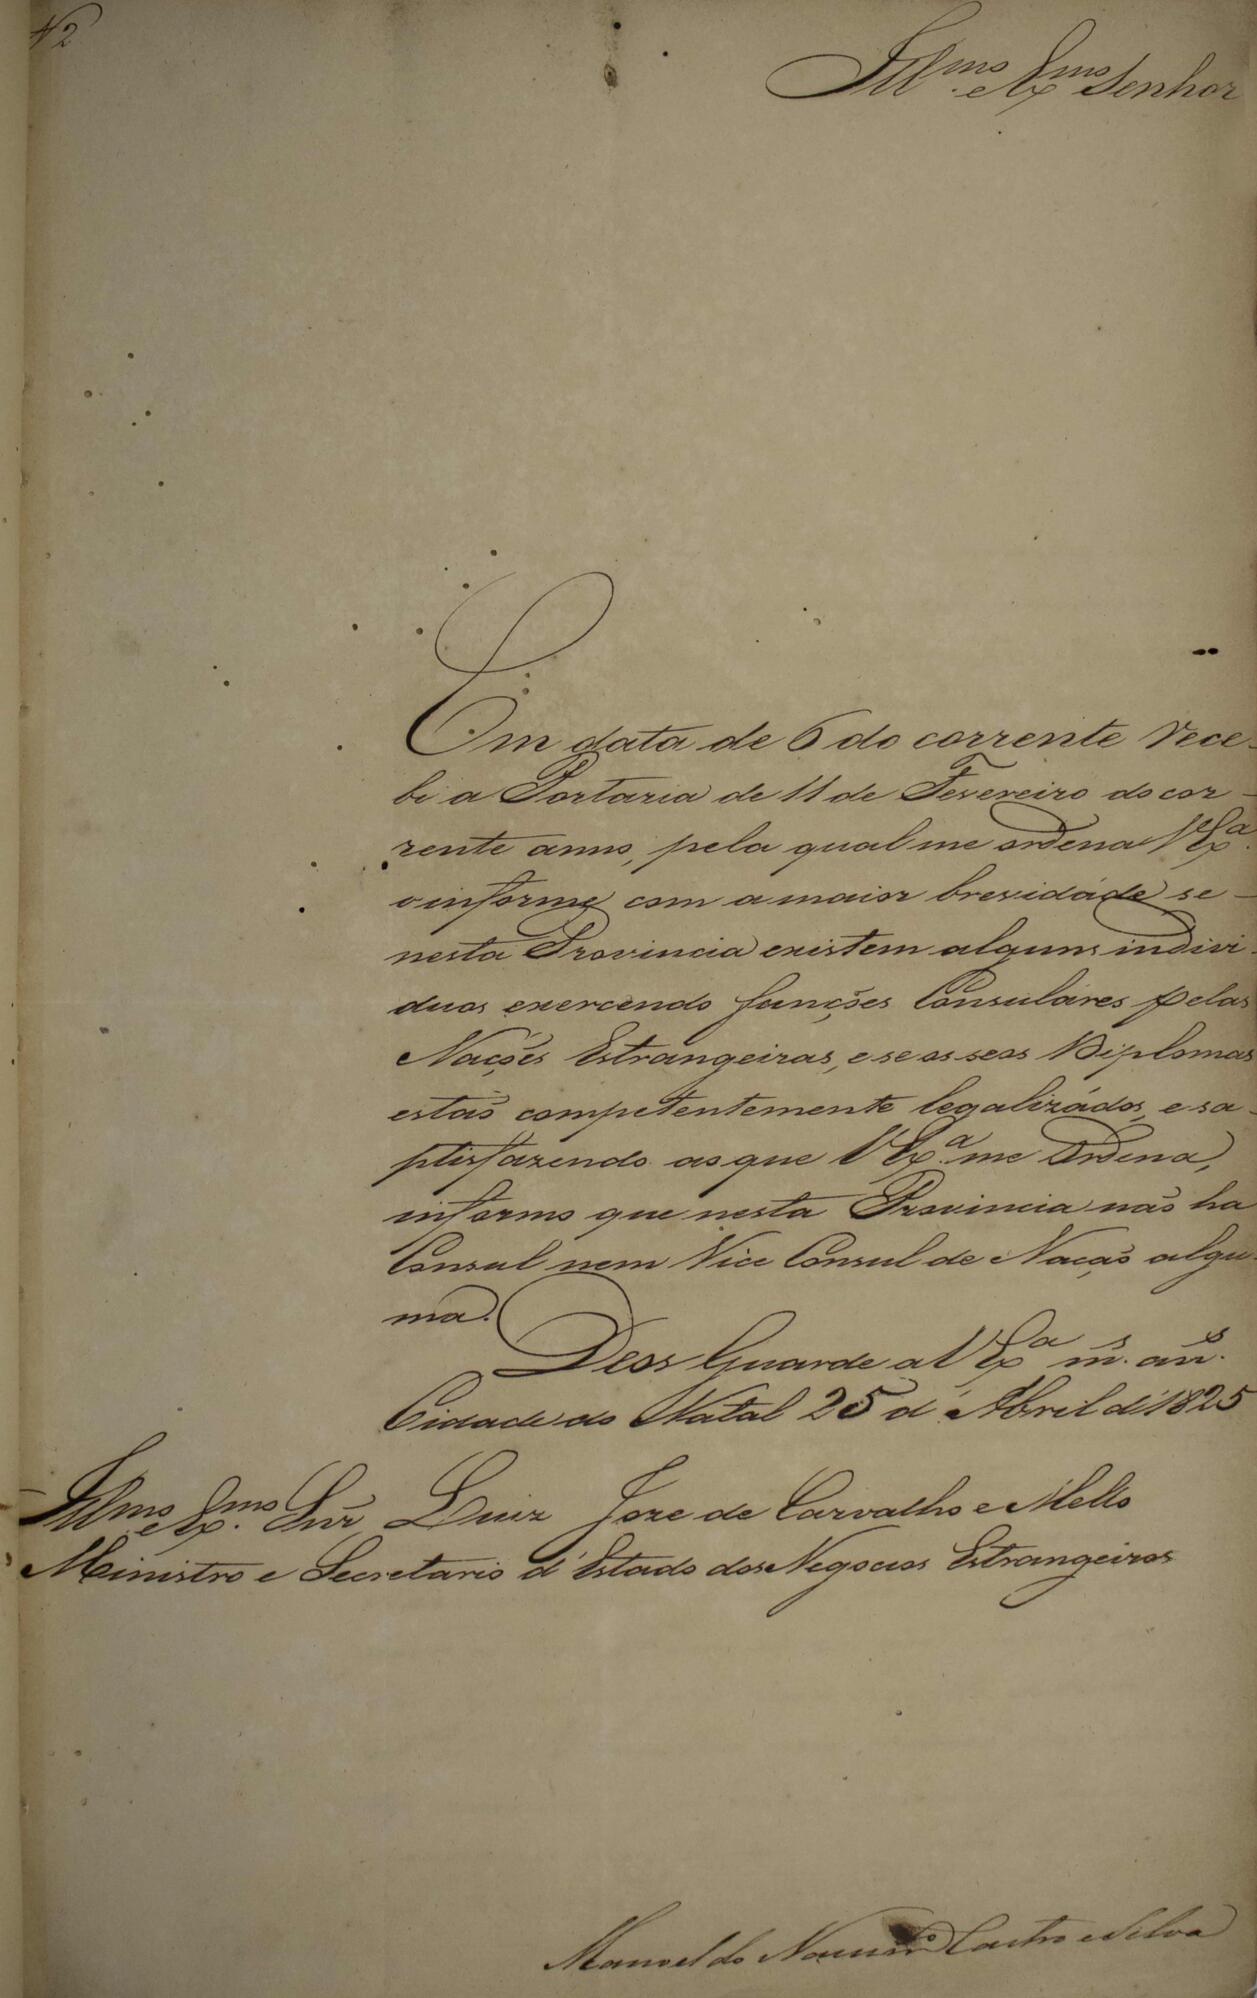 N2
Illmo e Exmo Senhor
Em data de 6 do corrente rece-
bi a Portaria de 11 de Fevereiro do cor-
rente anno, pela qual me ordena V Exa.
o informe com a maior brevidáde se-
nesta Provincia existem alguns indivi-
duos exercendo funções Consuláres pelas
Nações Estrangeiras, e se os seos Diplomas
estaõ competentemente legalizádos, e sa-
ptisfazendo ao que V Exa. me Ordena,
informo que nesta Provincia naõ ha
Consul nem Vice Consul de Naçaõ algu-
ma.
Deos Guarde a V Exa ms. ans.
Cidade do Natal 25 d'Abril d'1825
Illmo e Exmo. Snr̃ Luiz Joze de Carvalho e Mello
Ministro e Secretario d'Estado dos Negocios Estrangeiros
Manoel do Nascimto Castro e Silva